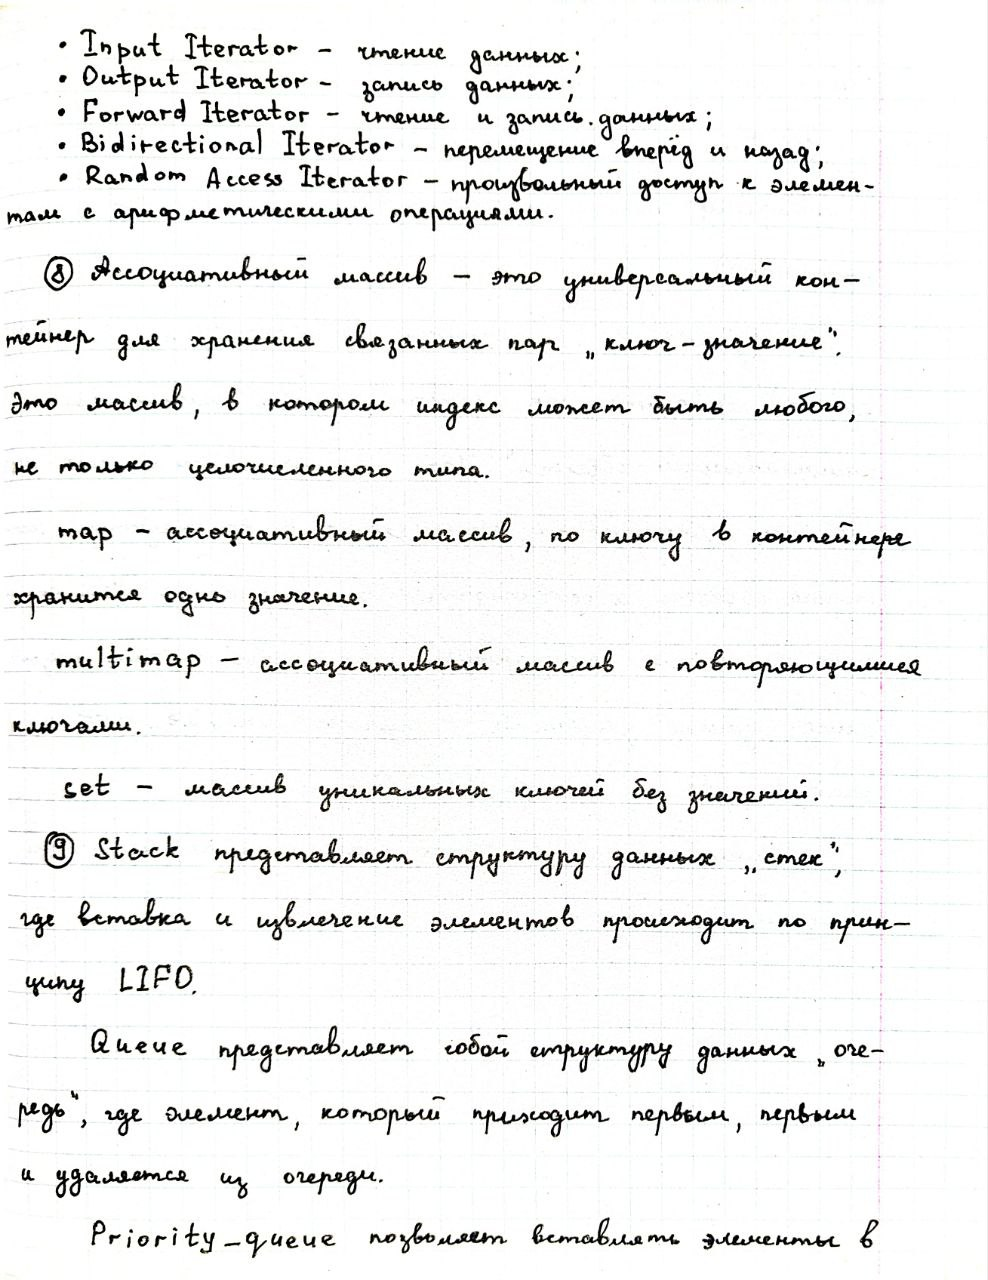 • Input Iterator – чтение данных;
• Output Iterator – запись данных;
• Forward Iterator – чтение и запись данных;
• Bidirectional Iterator – перемещение вперёд и назад;
• Random Access Iterator – произвольный доступ к элемен-
там с арифметическими операциями.
⑧ Ассоциативный массив – это универсальный кон-
тейнер для хранения связанных пар „ключ-значение“.
Это массив, в котором индекс может быть любого,
не только целочисленного типа.
map – ассоциативный массив, по ключу в контейнере
хранится одно значение.
multimap – ассоциативный массив с повторяющимися
ключами.
set – массив уникальных ключей без значений.
⑨ Stack представляет структуру данных „стек“,
где вставка и извлечение элементов происходит по прин-
ципу LIFO.
Queue представляет собой структуру данных „оче-
редь“, где элемент, который приходит первым, первым
и удаляется из очереди.
Priority_queue позволяет вставлять элементы в